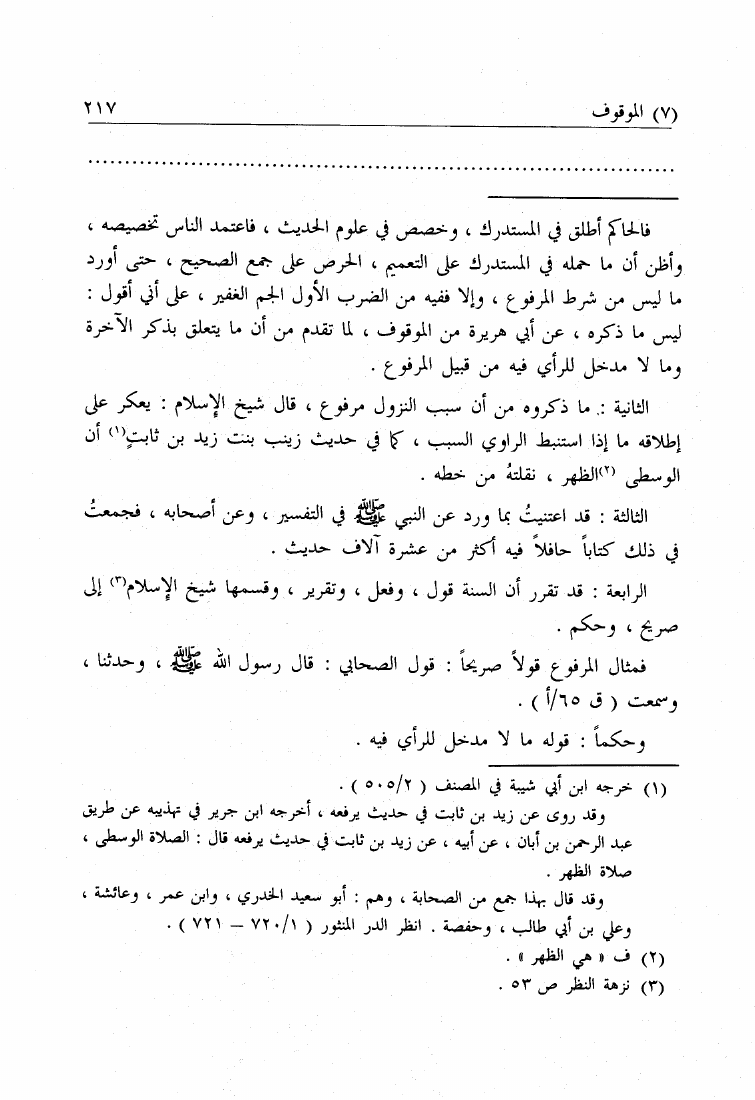 (٧) الموقوف ٢١٧
فالحاكم أطلق في المستدرك ، وخصص في علوم الحديث ، فاعتمد الناس تخصيصه ،
وأظن أن ما حمله في المستدرك على التعميم ، الحرص على جمع الصحيح ، حتى أورد
ما ليس من شرط المرفوع ، وإلا ففيه من الضرب الأول الجم الغفير ، على أني أقول :
ليس ما ذكره ، عن أبي هريرة من الموقوف ، لما تقدم من أن ما يتعلق بذكر الآخرة
وما لا مدخل للرأي فيه من قبيل المرفوع .
الثانية : ما ذكروه من أن سبب النزول مرفوع ، قال شيخ الإسلام : يعكر على
إطلاقه ما إذا استنبط الراوي السبب ، كما في حديث زينب بنت زيد بن ثابتٍ(١) أن
الوسطى (٢)الظهر ، نقلتهُ من خطه .
الثالثة : قد اعتنيتُ بما ورد عن النبي ﷺ في التفسير ، وعن أصحابه ، فجمعتُ
في ذلك كتاباً حافلاً فيه أكثر من عشرة آلاف حديث .
الرابعة : قد تقرر أن السنة قول ، وفعل ، وتقرير ، وقسمها شيخ الإسلام(٣) إلى
صريح ، وحكم .
فمثال المرفوع قولاً صريحاً : قول الصحابي : قال رسول الله ﷺ ، وحدثنا ،
وسمعت ( ق ٦٥/أ ) .
وحكماً : قوله ما لا مدخل للرأي فيه .
(١) خرجه ابن أبي شيبة في المصنف ( ٥٠٥/٢ ) .
وقد روى عن زيد بن ثابت في حديث يرفعه ، أخرجه ابن جرير في تهذيبه عن طريق
عبد الرحمن بن أبان ، عن أبيه ، عن زيد بن ثابت في حديث يرفعه قال : الصلاة الوسطى ،
صلاة الظهر .
وقد قال بهذا جمع من الصحابة ، وهم : أبو سعيد الخدري ، وابن عمر ، وعائشة ،
وعلي بن أبي طالب ، وحفصة . انظر الدر المنثور ( ٧٢٠/١ – ٧٢١ ) .
(٢) ف « هي الظهر » .
(٣) نزهة النظر ص ٥٣ .